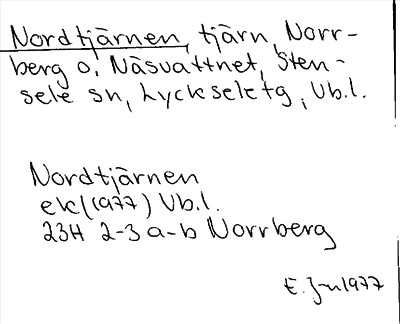 Nordtjärnen, tjärn, Norr-
berg o. Näsvattnet, Sten-
sele sn, Lycksele tg, Vb.l.
Nordtjärnen
ek (1977) Vb.l.
23H 2-3 a-b Norrberg
E. 1977